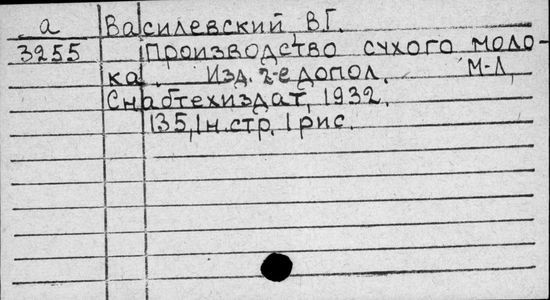 а Василевский, В.Г.
3255 Производство сухого моло-
ка. Изд. 2-е допол. М-Л,
Снабтехиздат, 1932.
135,1н.стр. 1рис.